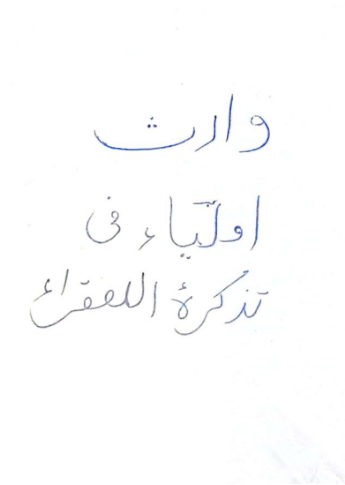 وارث
اولیّاء فی
تذکرۂ الفقراء